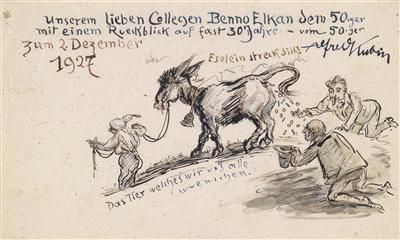 Unserem lieben Collegen Benno Elkan dem 50.ger
mit einem Rueckblick auf fast 30 Jahre - vom 50.ger
zum 2. Dezember
Alfred Kubin
1927
Eselein streck dich
Das Tier welches wir uns alle
wuenschen.